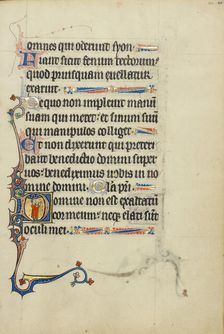 omnes qui oderunt syon.
Fiant sicut fenum tectorum
quod priusquam euellatur
exaruit.
De quo non impleuit manum
suam qui metet: et sinum suum
qui manipulos colliget.
Et non dixerunt qui preteri
bant benedictio domini super
uos: benediximus uobis in no
mine domini. Gla pri.
Domine non est exaltatum
cor meum: neqz elati sunt
oculi mei.